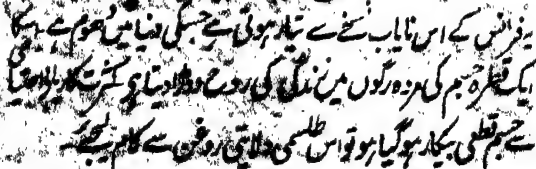 یہ فرانس کے اس نایاب نسخے سے تیار ہوتی ہے جسکی دنیا میں دھوم ہے اسکا
ایک قطرہ جسم کی مردہ رگوں میں زندگی کی روح دوڑا دیتا ہے کثرت کار یا بد احتیاطی
سے جسم قطعی بیکار ہو گیا ہو تو اس طلسمی ولایتی روغن سے کام لیجئے۔